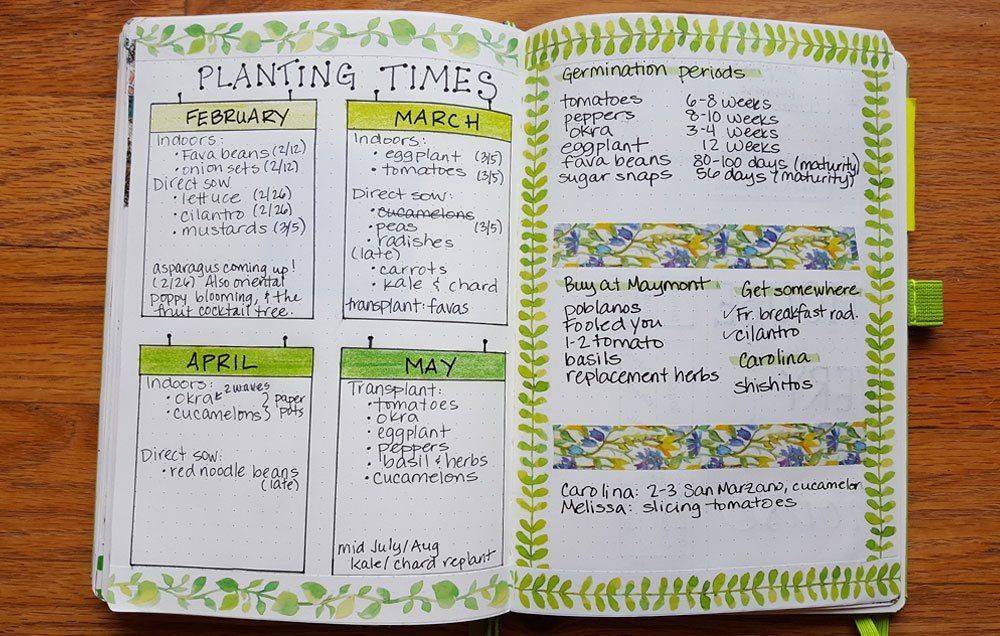 PLANTING TIMES
FEBRUARY
Indoors:
• Fava beans (2/12)
• onion sets (2/12)
Direct sow
• lettuce (2/26)
• cilantro (2/26)
• mustards (3/5)
asparagus coming up!
(2/26) Also oriental
poppy blooming, & the
fruit cocktail tree.
MARCH
Indoors:
• eggplant (3/5)
• tomatoes (3/5)
Direct sow:
• cucamelons
• peas (3/5)
• radishes
(late)
• carrots
• kale & chard
transplant: favas
APRIL
Indoors:
• okra ← 2 waves
• cucamelons } paper pots
Direct sow:
• red noodle beans
(late)
MAY
Transplant:
• tomatoes
• okra
• eggplant
• peppers
• basil & herbs
• cucamelons
mid July/Aug
kale/chard replant
Germination periods
tomatoes 6-8 weeks
peppers 8-10 weeks
okra 3-4 weeks
eggplant 12 weeks
fava beans 80-100 days (maturity)
sugar snaps 56 days (maturity)
Buy at Maymont:
poblanos
Fooled you
1-2 tomato
basils
replacement herbs
Get somewhere
✓ Fr. breakfast rad.
✓ cilantro
Carolina
shishitos
Carolina: 2-3 San Marzano, cucamelon
Melissa: slicing tomatoes